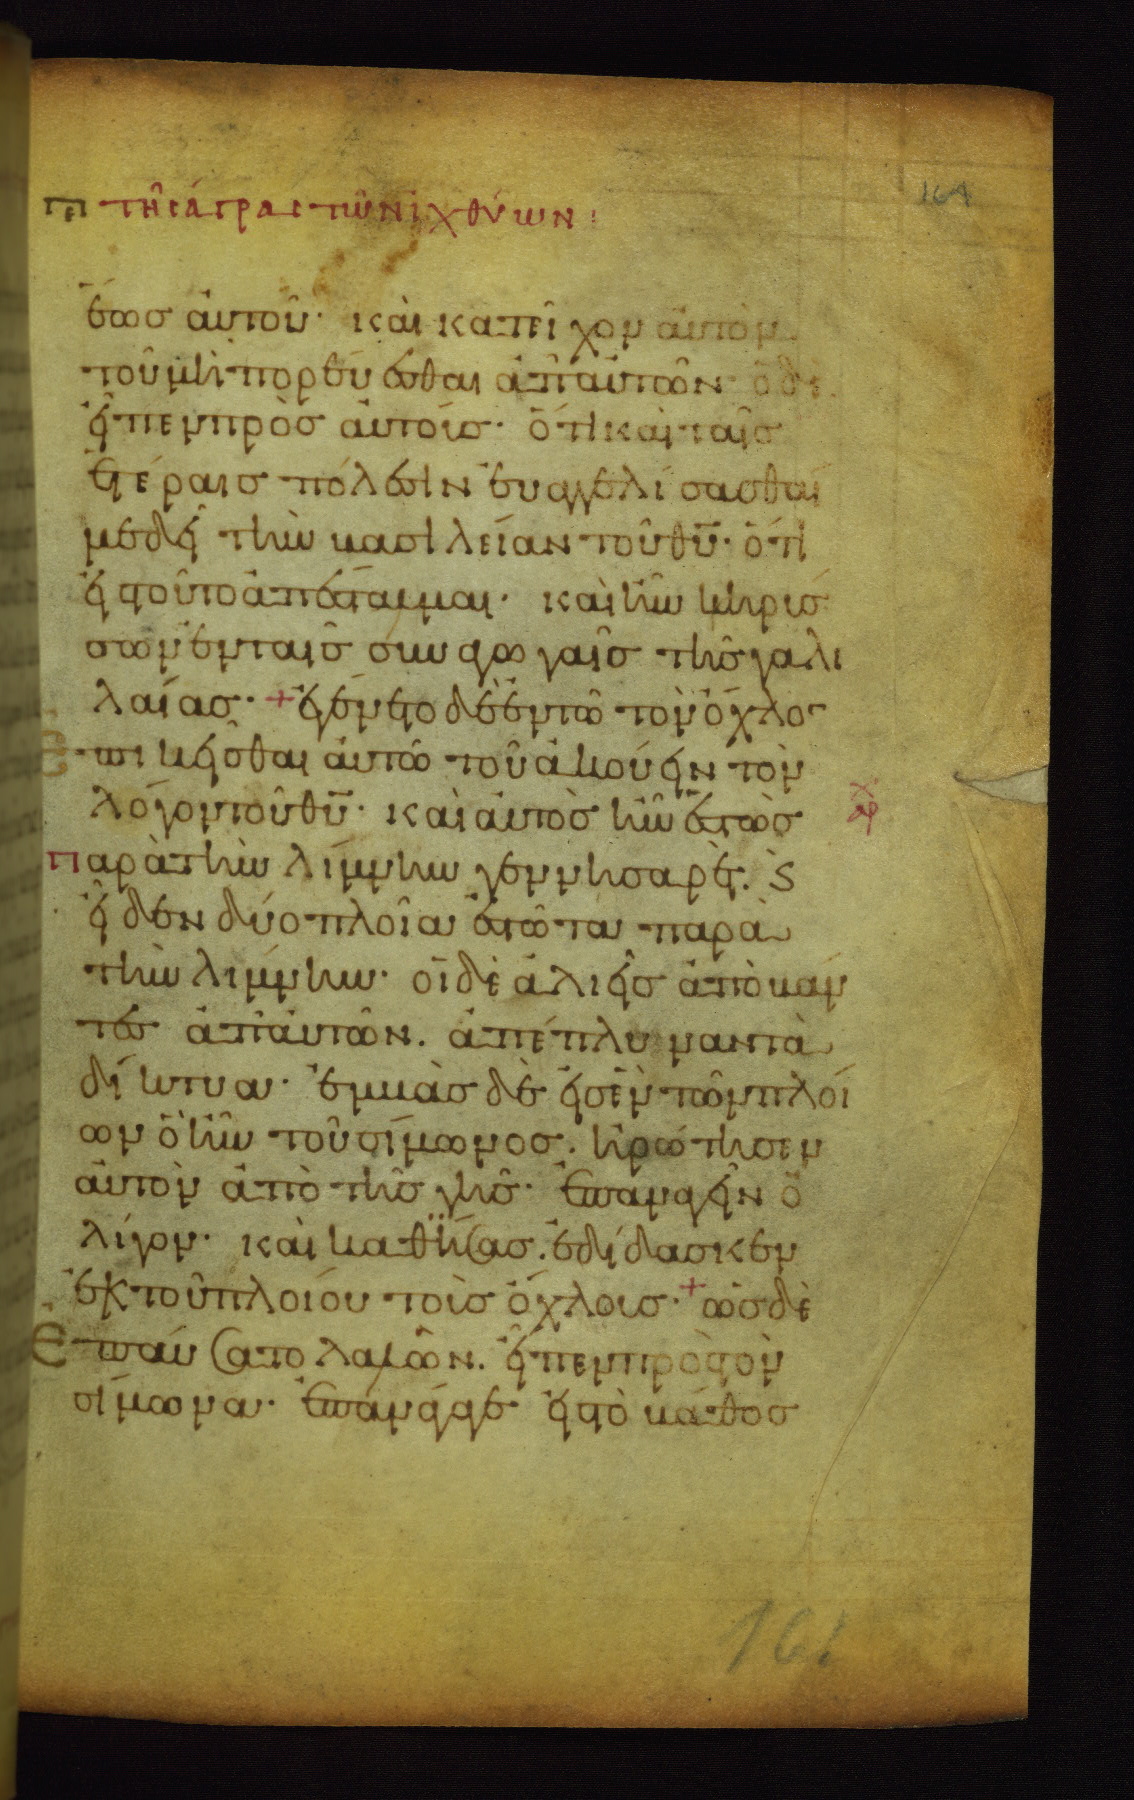 πε τῆς άγρας τῶν ἰχθύων:
164
ἕως αὐτοῦ· καὶ κατεῖχον αὐτὸν
τοῦ μὴ πορεύεσθαι ἀπ' αὐτῶν· ὁ δὲ
εἶπεν πρὸς αὐτοὺς· ὅτι καὶ ταῖς
ἑτέραις πόλεσιν εὐαγγελίσασθαί
με δεῖ τὴν βασιλείαν τοῦ θυ· ὅτι
εἰς τοῦτο ἀπέσταλμαι· καὶ ἦν κηρύσ
σων ἐν ταῖς συναγωγαῖς τῆς γαλι
λαίας· + ἐγένετο δὲ ἐν τῶ τὸν ὄχλον
ἐπικεῖσθαι αὐτῶ τοῦ ἀκούειν τὸν
λόγον τοῦ θυ· καὶ αὐτὸς ἦν ἑστὼς
παρὰ τὴν λίμνην γεννησαρέτ· ϗ
εἶδεν δύο πλοῖα ἑστῶτα παρὰ
τὴν λίμνην· οἱ δὲ ἁλιεῖς ἀποβάν
τες ἀπ' αὐτῶν· ἀπέπλυναν τὰ
δίκτυα· ἐμβὰς δὲ εἰς ἓν τῶν πλοί
ων ὃ ἦν τοῦ σίμωνος· ἠρώτησεν
αὐτὸν ἀπὸ τῆς γῆς· ἐπαναγαγεῖν ὀ
λίγον· καὶ καθήσας· ἐδίδασκεν
ἐκ τοῦ πλοίου τοὺς ὄχλους· + ὡς δὲ
ἐπαύσατο λαλῶν· εἶπεν πρὸς τὸν
σίμωνα· ἐπανάγαγε εἰς τὸ βάθος
161